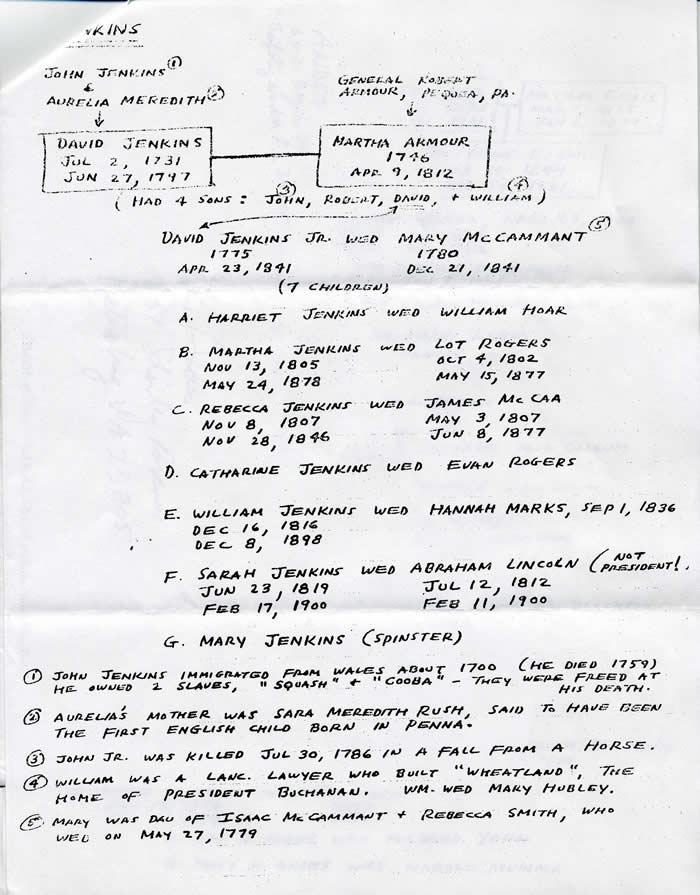 NKINS
JOHN JENKINS ①
&
AURELIA MEREDITH ②
GENERAL ROBERT
ARMOUR, PEQUEA, PA.
DAVID JENKINS
JUL 2, 1731
JUN 27, 1797
MARTHA ARMOUR
1746
APR 9, 1812
(HAD 4 SONS: JOHN, ③ ROBERT, DAVID, + WILLIAM ④)
DAVID JENKINS JR. WED MARY McCAMMANT ⑤
1775 1780
APR 23, 1841 DEC 21, 1841
(7 CHILDREN)
A. HARRIET JENKINS WED WILLIAM HOAR
B. MARTHA JENKINS WED LOT ROGERS
NOV 13, 1805 OCT 4, 1802
MAY 24, 1878 MAY 15, 1877
C. REBECCA JENKINS WED JAMES McCAA
NOV 8, 1807 MAY 3, 1807
NOV 28, 1846 JUN 8, 1877
D. CATHARINE JENKINS WED EVAN ROGERS
E. WILLIAM JENKINS WED HANNAH MARKS, SEP 1, 1836
DEC 16, 1816
DEC 8, 1898
F. SARAH JENKINS WED ABRAHAM LINCOLN (NOT PRESIDENT!.
JUN 23, 1819 JUL 12, 1812
FEB 17, 1900 FEB 11, 1900
G. MARY JENKINS (SPINSTER)
① JOHN JENKINS IMMIGRATED FROM WALES ABOUT 1700 (HE DIED 1759)
HE OWNED 2 SLAVES, "SQUASH" + "COOBA" - THEY WERE FREED AT
HIS DEATH.
② AURELIA'S MOTHER WAS SARA MEREDITH RUSH, SAID TO HAVE BEEN
THE FIRST ENGLISH CHILD BORN IN PENNA.
③ JOHN JR. WAS KILLED JUL 30, 1786 IN A FALL FROM A HORSE.
④ WILLIAM WAS A LANC. LAWYER WHO BUILT "WHEATLAND", THE
HOME OF PRESIDENT BUCHANAN. WM. WED MARY HUBLEY.
⑤ MARY WAS DAU OF ISAAC McCAMMANT + REBECCA SMITH, WHO
WED ON MAY 27, 1779